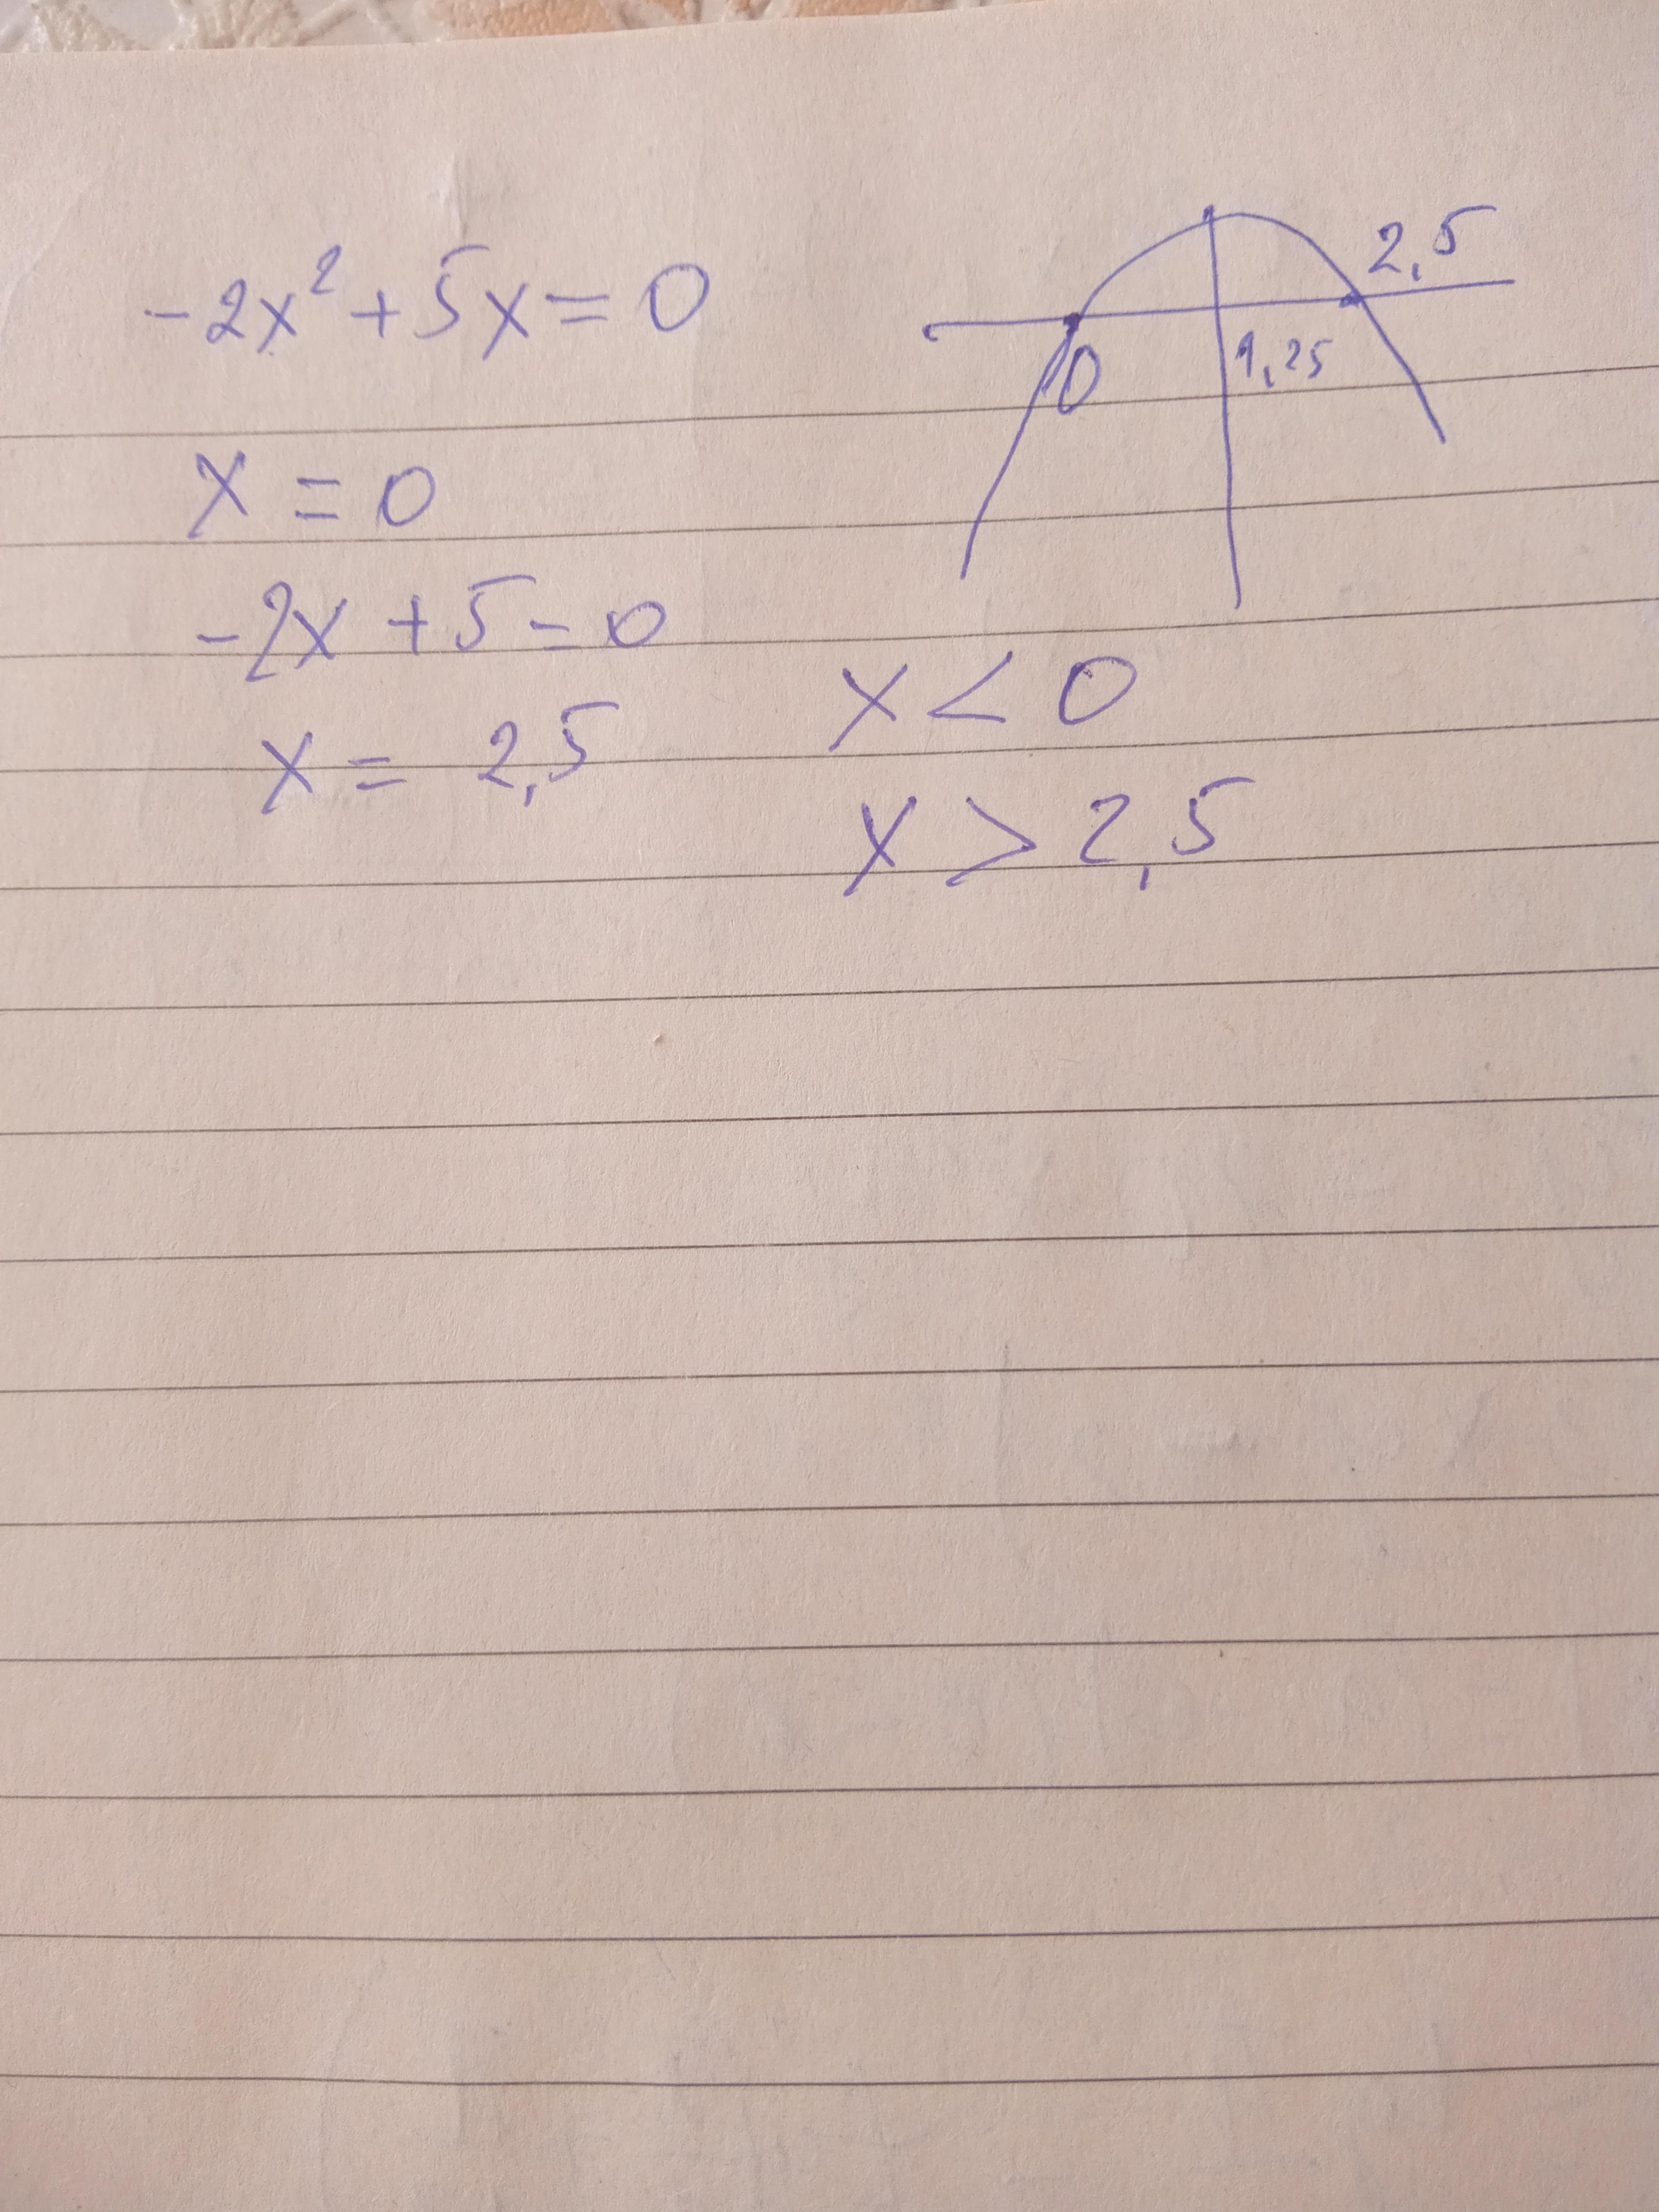 -2x² + 5x = 0
x = 0
-2x + 5 = 0
x = 2,5
2,5
0
1,25
x < 0
x > 2,5